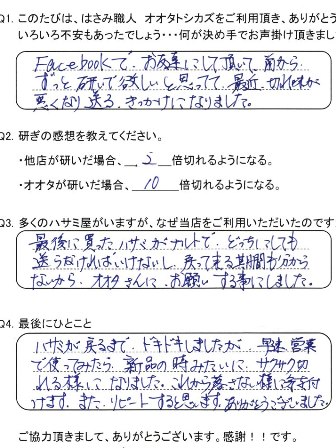 Q1. このたびは、はさみ職人 オオタトシカズをご利用頂き、ありがとう
いろいろ不安もあったでしょう・・・何が決め手でお声掛け頂きまし
Facebookで お友達にして頂いて、前から
ずっと研いで欲しいと思ってて 最近 切れ味が
悪くなり送る きっかけになりました。
Q2. 研ぎの感想を教えてください。
・他店が研いだ場合、 2 倍切れるようになる。
・オオタが研いだ場合、 10 倍切れるようになる。
Q3. 多くのハサミ屋がいますが、なぜ当店をご利用いただいたのです
最後に買ったハサミがナルトで どっちにしても
送らなければいけないし、戻って来る期間も分から
ないから、オオタさんに お願いする事にしました。
Q4. 最後にひとこと
ハサミが戻るまで ドキドキしましたが、早速 営業
で使ってみたら 新品の時みたいに サクサク切
れる様に なりました。これから落さない様に気を付
けます。また リピートすると思います。ありがとうございました。
ご協力頂きまして、ありがとうございます。感謝！！です。